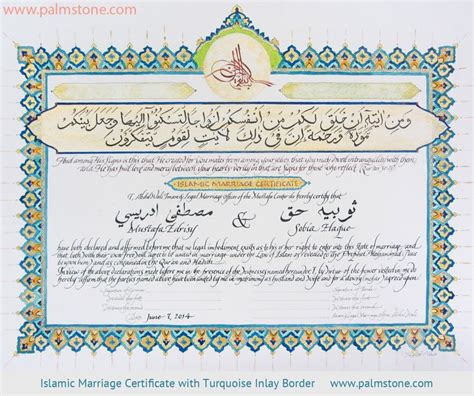 www.palmstone.com
ومن آياته أن خلق لكم من أنفسكم أزواجا لتسكنوا إليها وجعل بينكم
مودة ورحمة إن في ذلك لآيات لقوم يتفكرون
And among His Signs is this that He created for you mates from among yourselves, that you may dwell in tranquility with them;
and He has put love and mercy between your hearts verily in that are signs for those who reflect
ISLAMIC MARRIAGE CERTIFICATE
Imam & Legal Marriage Officer of the Mustafa Center do hereby certify that
ثوبية حق & مصطفى ادريسي
Mustafa Edrisy Sobia Haque
have both declared and affirmed before me that no legal impediment exists as to his or her right to enter into this state of marriage, and
that both with their own free will, agree to unite in marriage under the Law of Islam as revealed to The Prophet Mohammad, Peace
be upon him, and as contained in the Qur'an and Hadith.
In view of the above declarations made before me in the presence of the witnesses named hereunder, I, by virtue of the power vested in me do
hereby affirm that the parties named above have been united by me in matrimony as husband and wife
June 7, 2014
Islamic Marriage Certificate with Turquoise Inlay Border www.palmstone.com